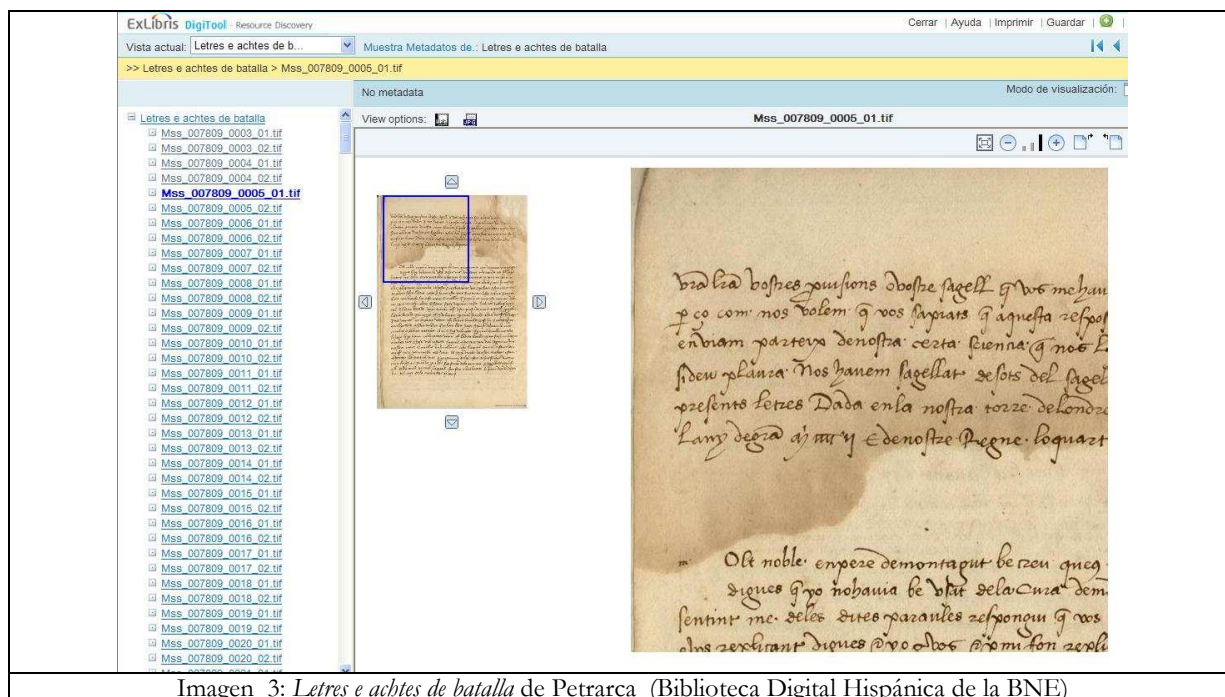 ExLibris DigiTool - Resource Discovery
Cerrar | Ayuda | Imprimir | Guardar |
Vista actual: Letres e achtes de b...
Muestra Metadatos de.: Letres e achtes de batalla
>> Letres e achtes de batalla > Mss_007809_0005_01.tif
No metadata
Modo de visualización:
Letres e achtes de batalla
Mss_007809_0003_01.tif
Mss_007809_0003_02.tif
Mss_007809_0004_01.tif
Mss_007809_0004_02.tif
Mss_007809_0005_01.tif
Mss_007809_0005_02.tif
Mss_007809_0006_01.tif
Mss_007809_0006_02.tif
Mss_007809_0007_01.tif
Mss_007809_0007_02.tif
Mss_007809_0008_01.tif
Mss_007809_0008_02.tif
Mss_007809_0009_01.tif
Mss_007809_0009_02.tif
Mss_007809_0010_01.tif
Mss_007809_0010_02.tif
Mss_007809_0011_01.tif
Mss_007809_0011_02.tif
Mss_007809_0012_01.tif
Mss_007809_0012_02.tif
Mss_007809_0013_01.tif
Mss_007809_0013_02.tif
Mss_007809_0014_01.tif
Mss_007809_0014_02.tif
Mss_007809_0015_01.tif
Mss_007809_0015_02.tif
Mss_007809_0016_01.tif
Mss_007809_0016_02.tif
Mss_007809_0017_01.tif
Mss_007809_0017_02.tif
Mss_007809_0018_01.tif
Mss_007809_0018_02.tif
Mss_007809_0019_01.tif
Mss_007809_0019_02.tif
Mss_007809_0020_01.tif
Mss_007809_0020_02.tif
View options: JPG
Mss_007809_0005_01.tif
vostres sagell q vos me hau
com nos volem q vos sapiats q aquesta respos
enviam parteix denostra certa sciencia q nos
plaura Nos havem sagellar desots del sagel
presents letres Dada enla nostra torre delondre
Lany E denostre Regne loquart
noble enpere demontagut be creu queq
digues q yo nohavia be dela Cura dem
sentint me deles dites paraules respongui q vos
replicant digues
Imagen 3: Letres e achtes de batalla de Petrarca (Biblioteca Digital Hispánica de la BNE)